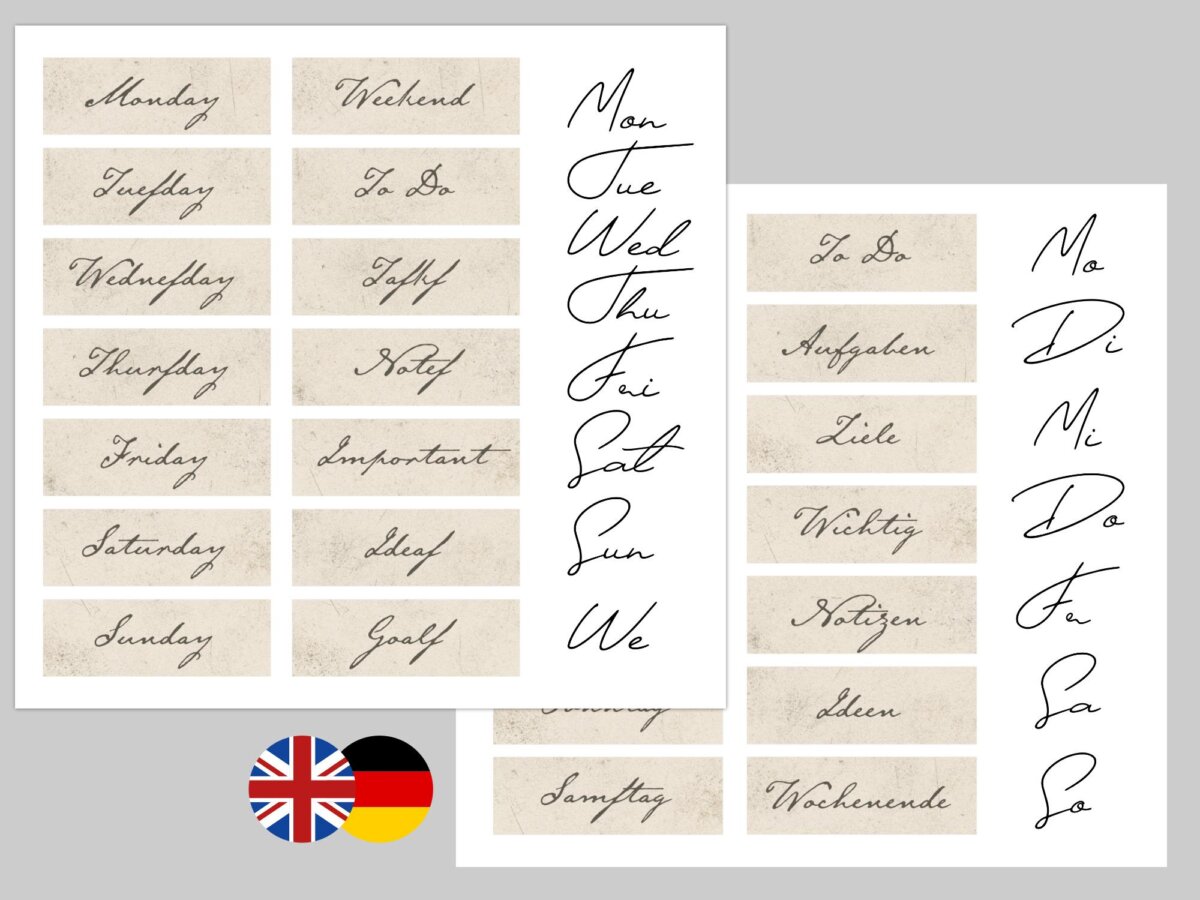 Monday
Tueſday
Wedneſday
Thurſday
Friday
Saturday
Sunday
Weekend
To Do
Taſkſ
Noteſ
Important
Ideaſ
Goalſ
Mon
Tue
Wed
Thu
Fri
Sat
Sun
We
Samſtag
To Do
Aufgaben
Ziele
Wichtig
Notizen
Ideen
Wochenende
Mo
Di
Mi
Do
Fr
Sa
So